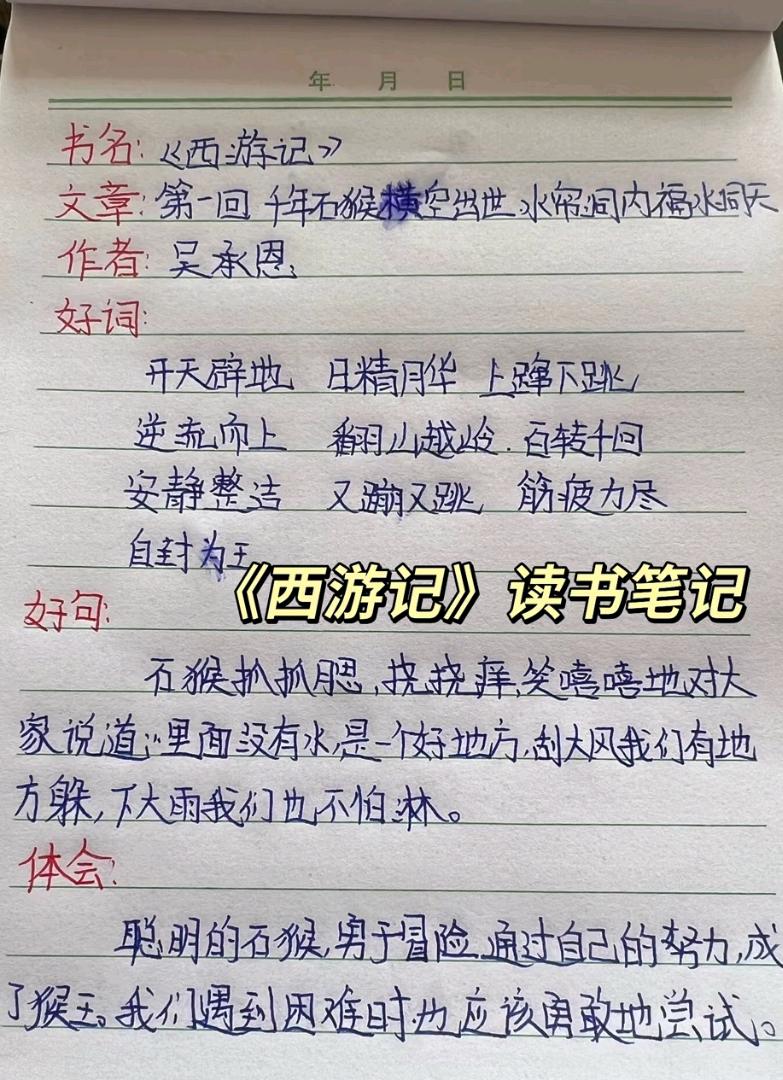 年 月 日
书名:《西游记》
文章:第一回 千年石猴横空出世 水帘洞内福水洞天
作者:吴承恩
好词:
开天辟地 日精月华 上蹿下跳
逆流而上 翻山越岭 百转千回
安静整洁 又蹦又跳 筋疲力尽
自封为王
《西游记》读书笔记
好句:
石猴抓抓腮,挠挠痒,笑嘻嘻地对大
家说道:“里面没有水,是一个好地方,刮大风我们有地
方躲,下大雨我们也不怕淋。
体会:
聪明的石猴,勇于冒险,通过自己的努力,成
了猴王。我们遇到困难时也应该勇敢地尝试。